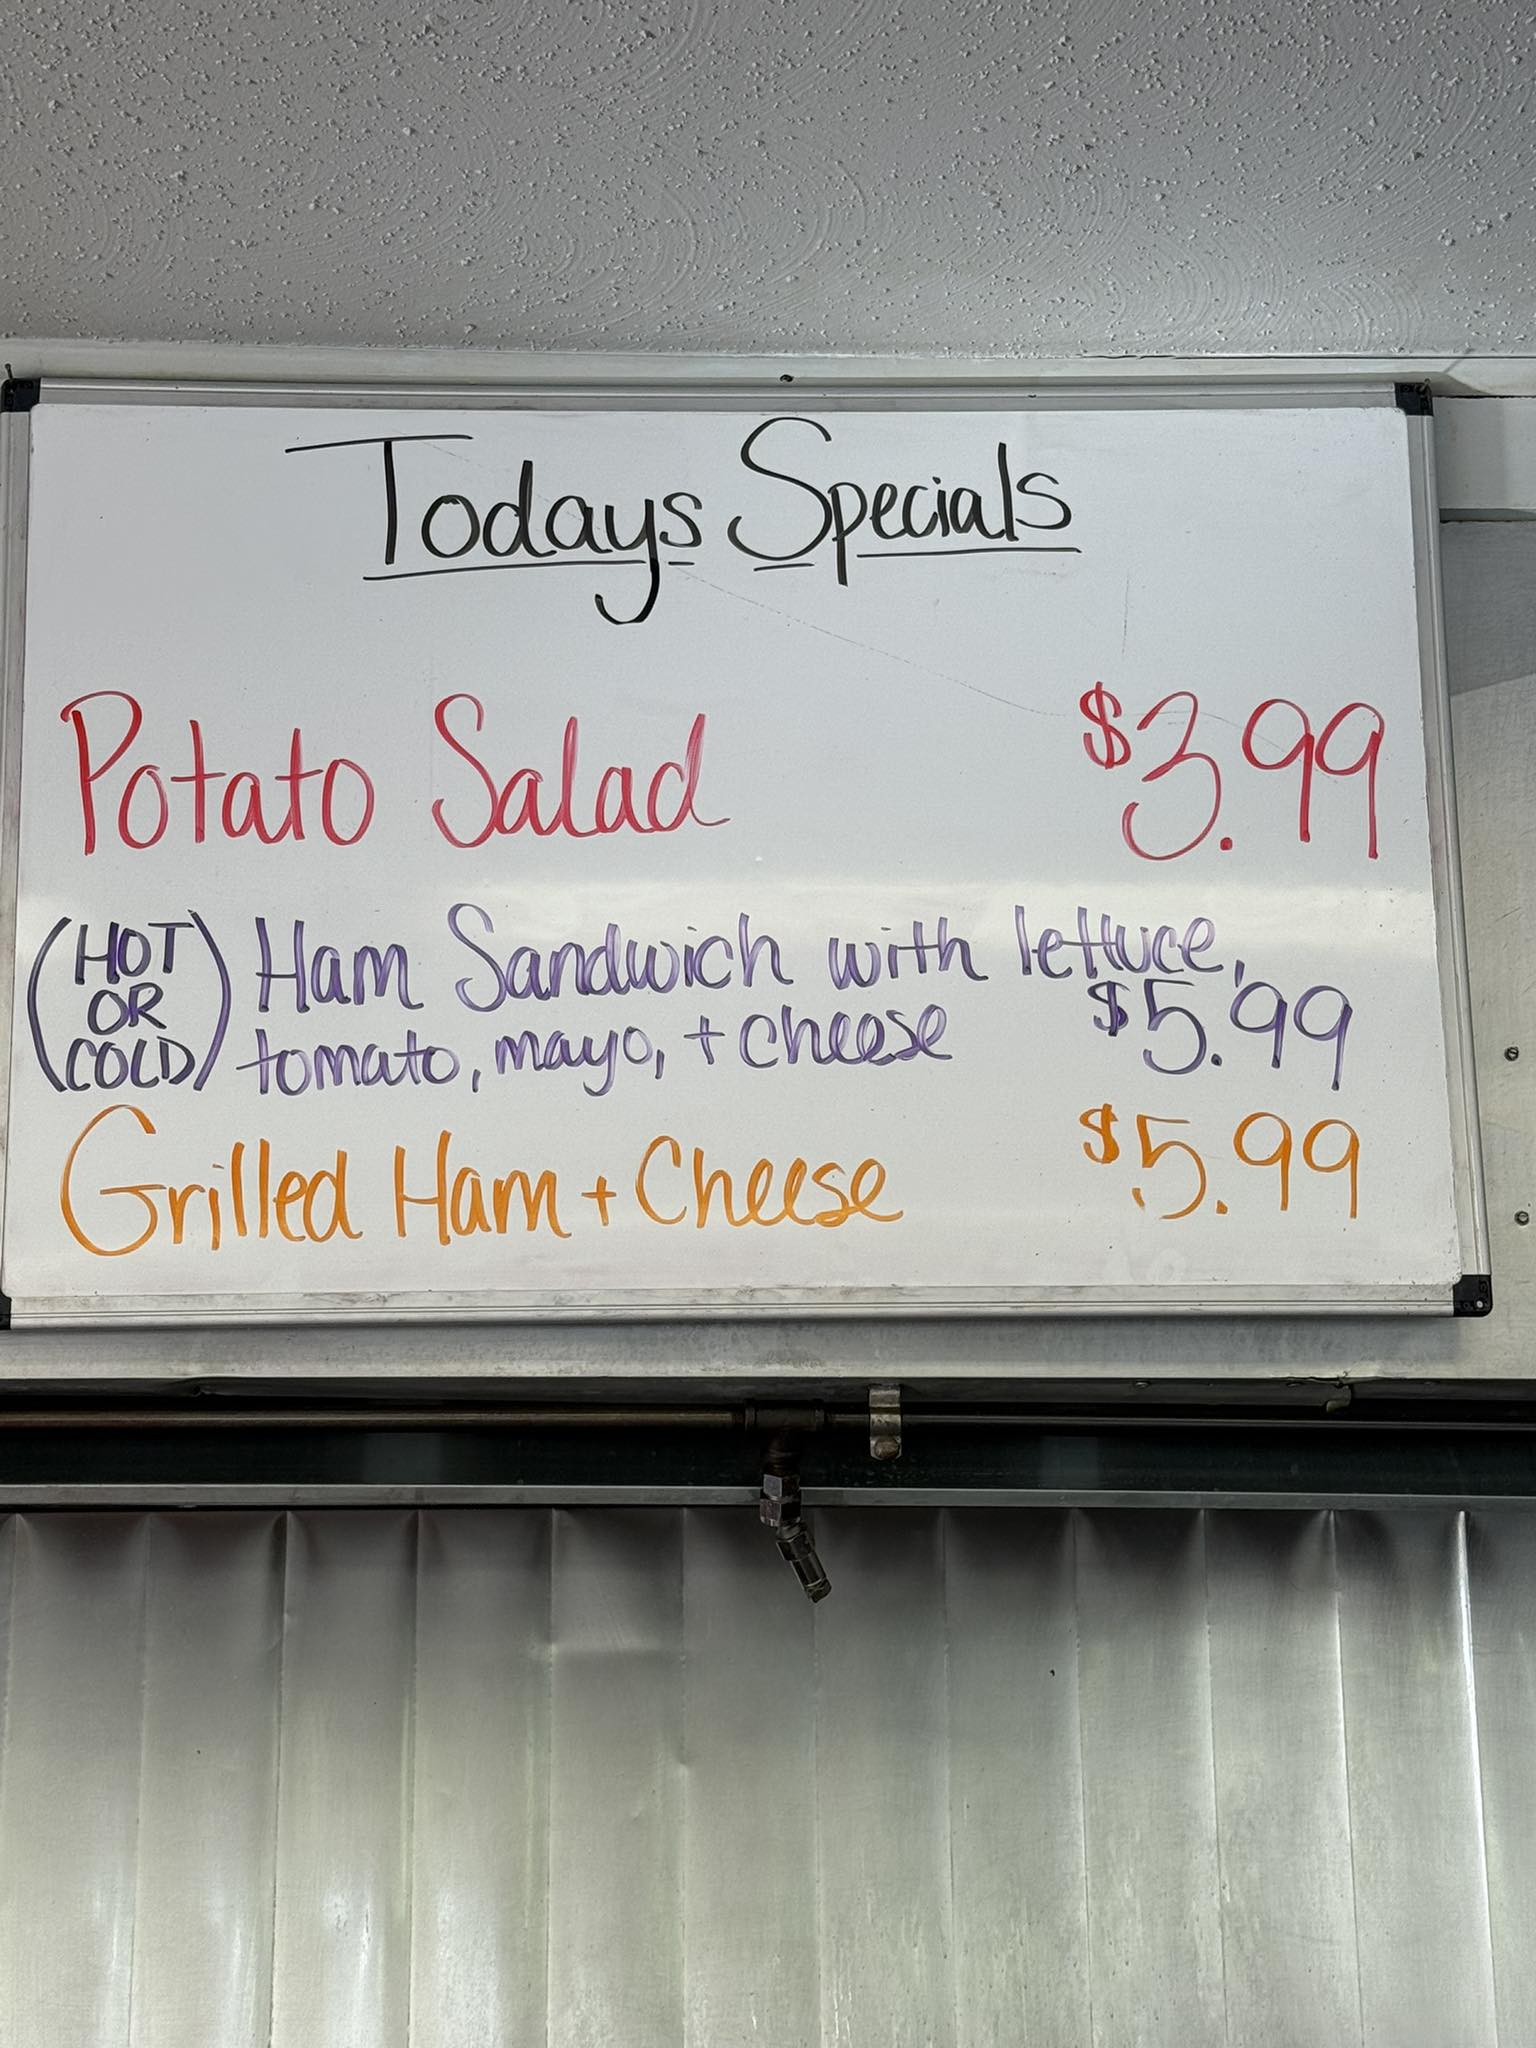 Todays Specials
Potato Salad $3.99
(HOT OR COLD) Ham Sandwich with lettuce,
tomato, mayo, + cheese $5.99
Grilled Ham + Cheese $5.99